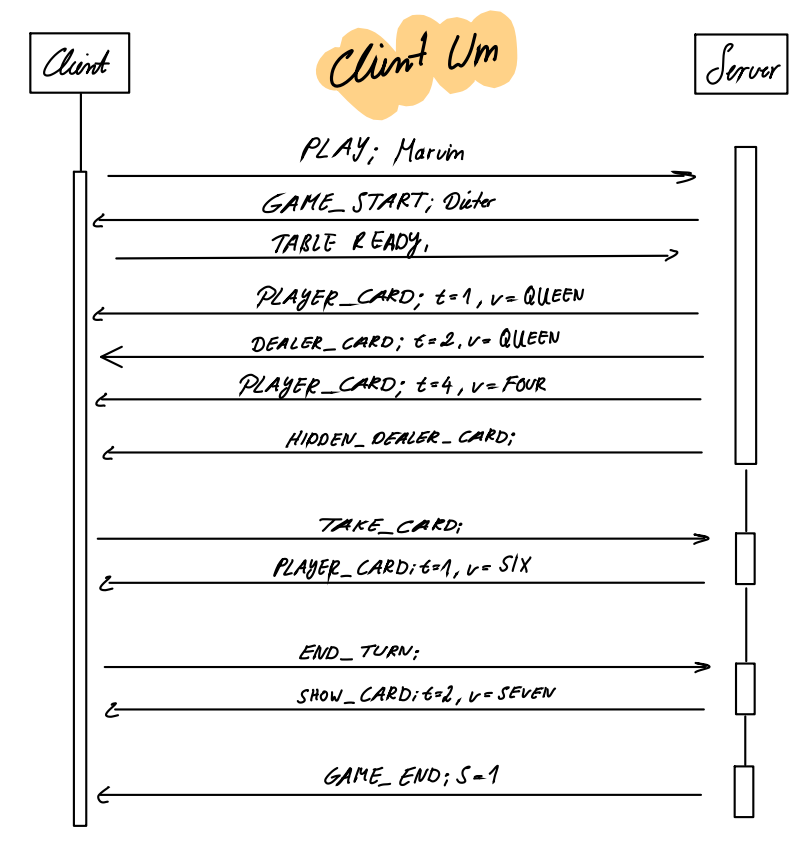 Client
Client Wm
Server
PLAY; Marvin
GAME_START; Dieter
TABLE READY,
PLAYER_CARD; t=1, v=QUEEN
DEALER_CARD; t=2, v=QUEEN
PLAYER_CARD; t=4, v=FOUR
HIDDEN_DEALER_CARD;
TAKE_CARD;
PLAYER_CARD; t=1, v=SIX
END_TURN;
SHOW_CARD; t=2, v=SEVEN
GAME_END; S=1